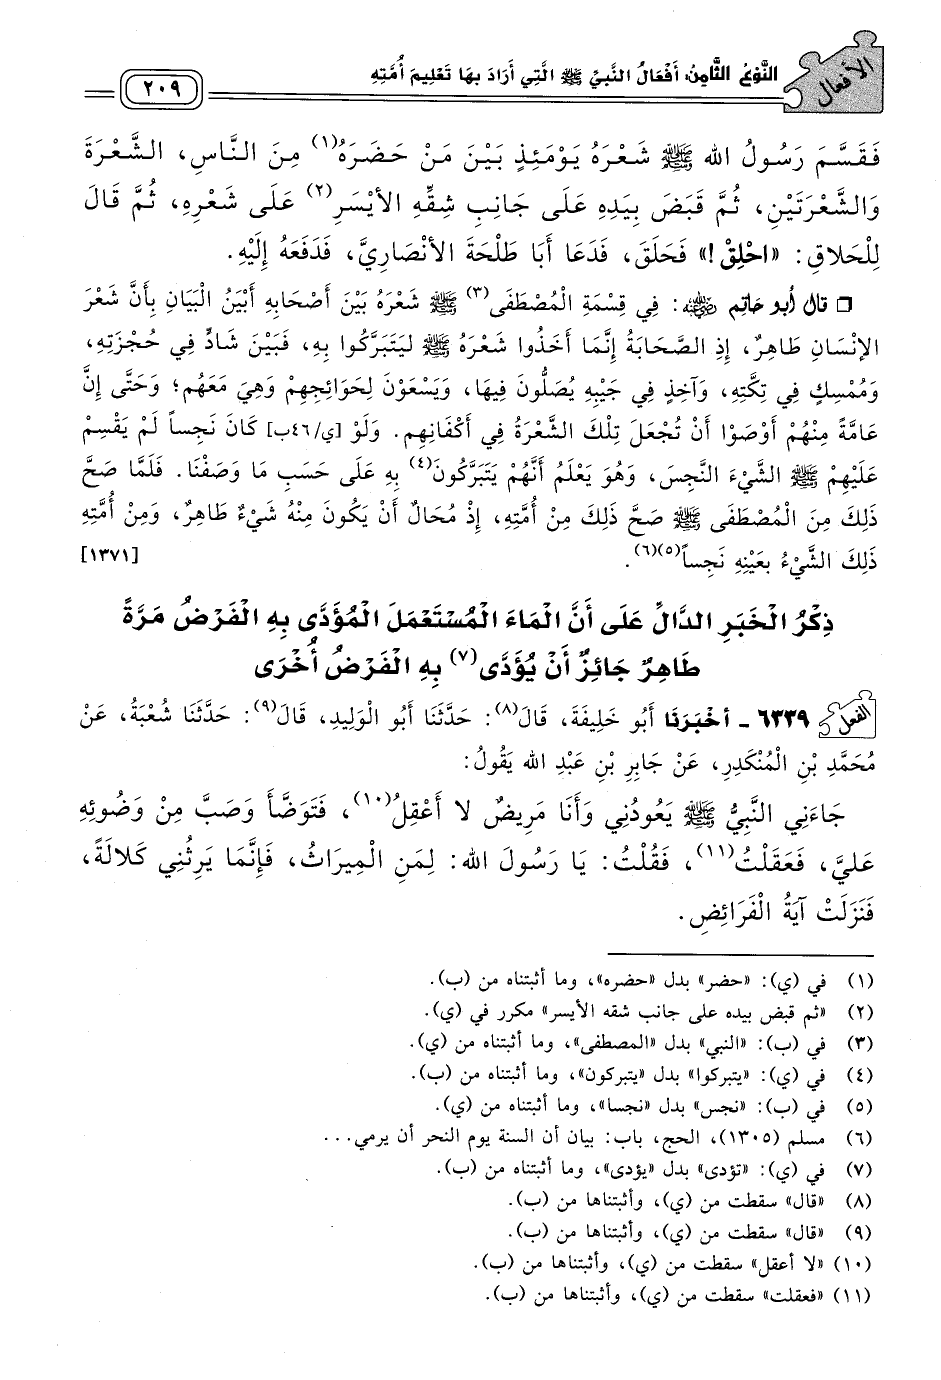 الأفعال
النَّوْعُ الثَّامِنُ: أَفْعَالُ النَّبِيِّ ﷺ الَّتِي أَرَادَ بِهَا تَعْلِيمَ أُمَّتِهِ
٢٠٩
فَقَسَّمَ رَسُولُ الله ﷺ شَعْرَهُ يَوْمَئِذٍ بَيْنَ مَنْ حَضَرَهُ(١) مِنَ النَّاسِ، الشَّعْرَةَ
وَالشَّعْرَتَيْنِ، ثُمَّ قَبَضَ بِيَدِهِ عَلَى جَانِبِ شِقِّهِ الأَيْسَرِ(٢) عَلَى شَعْرِهِ، ثُمَّ قَالَ
لِلْحَلاقِ: «احْلِقْ!» فَحَلَقَ، فَدَعَا أَبَا طَلْحَةَ الأَنْصَارِيَّ، فَدَفَعَهُ إِلَيْهِ.
❑ قال أبو حاتم رضي الله عنه: فِي قِسْمَةِ الْمُصْطَفَى(٣) ﷺ شَعْرَهُ بَيْنَ أَصْحَابِهِ أَبْيَنُ الْبَيَانِ بِأَنَّ شَعْرَ
الإِنْسَانِ طَاهِرٌ، إِذِ الصَّحَابَةُ إِنَّمَا أَخَذُوا شَعْرَهُ ﷺ لِيَتَبَرَّكُوا بِهِ، فَبَيْنَ شَادٍّ فِي حُجْزَتِهِ،
وَمُمْسِكٍ فِي تِكَّتِهِ، وَآخِذٍ فِي جَيْبِهِ يُصَلُّونَ فِيهَا، وَيَسْعَوْنَ لِحَوَائِجِهِمْ وَهِيَ مَعَهُم؛ وَحَتَّى إِنَّ
عَامَّةً مِنْهُمْ أَوْصَوْا أَنْ تُجْعَلَ تِلْكَ الشَّعْرَةُ فِي أَكْفَانِهِم. وَلَوْ [ي/٤٦ب] كَانَ نَجِساً لَمْ يَقْسِم
عَلَيْهِمْ ﷺ الشَّيْءَ النَّجِسَ، وَهُوَ يَعْلَمُ أَنَّهُمْ يَتَبَرَّكُونَ(٤) بِهِ عَلَى حَسَبِ مَا وَصَفْنَا. فَلَمَّا صَحَّ
ذَلِكَ مِنَ الْمُصْطَفَى ﷺ صَحَّ ذَلِكَ مِنْ أُمَّتِهِ، إِذْ مُحَالٌ أَنْ يَكُونَ مِنْهُ شَيْءٌ طَاهِرٌ، وَمِنْ أُمَّتِهِ
ذَلِكَ الشَّيْءُ بِعَيْنِهِ نَجِساً(٥)(٦). [١٣٧١]
ذِكْرُ الْخَبَرِ الدَّالِّ عَلَى أَنَّ الْمَاءَ الْمُسْتَعْمَلَ الْمُؤَدَّى بِهِ الْفَرْضُ مَرَّةً
طَاهِرٌ جَائِزٌ أَنْ يُؤَدَّى(٧) بِهِ الْفَرْضُ أُخْرَى
الفعل ٦٣٣٩ - أَخْبَرَنَا أَبُو خَلِيفَةَ، قَالَ(٨): حَدَّثَنَا أَبُو الْوَلِيدِ، قَالَ(٩): حَدَّثَنَا شُعْبَةُ، عَنْ
مُحَمَّدِ بْنِ الْمُنْكَدِرِ، عَنْ جَابِرِ بْنِ عَبْدِ الله يَقُولُ:
جَاءَنِي النَّبِيُّ ﷺ يَعُودُنِي وَأَنَا مَرِيضٌ لا أَعْقِلُ(١٠)، فَتَوَضَّأَ وَصَبَّ مِنْ وَضُوئِهِ
عَلَيَّ، فَعَقَلْتُ(١١)، فَقُلْتُ: يَا رَسُولَ الله: لِمَنِ الْمِيرَاثُ، فَإِنَّمَا يَرِثُنِي كَلالَةٌ،
فَنَزَلَتْ آيَةُ الْفَرَائِضِ.
(١) في (ي): «حضر» بدل «حضره»، وما أثبتناه من (ب).
(٢) «ثم قبض بيده على جانب شقه الأيسر» مكرر في (ي).
(٣) في (ب): «النبي» بدل «المصطفى»، وما أثبتناه من (ي).
(٤) في (ي): «يتبركوا» بدل «يتبركون»، وما أثبتناه من (ب).
(٥) في (ب): «نجس» بدل «نجسا»، وما أثبتناه من (ي).
(٦) مسلم (١٣٠٥)، الحج، باب: بيان أن السنة يوم النحر أن يرمي...
(٧) في (ي): «تؤدى» بدل «يؤدى»، وما أثبتناه من (ب).
(٨) «قال» سقطت من (ي)، وأثبتناها من (ب).
(٩) «قال» سقطت من (ي)، وأثبتناها من (ب).
(١٠) «لا أعقل» سقطت من (ي)، وأثبتناها من (ب).
(١١) «فعقلت» سقطت من (ي)، وأثبتناها من (ب).